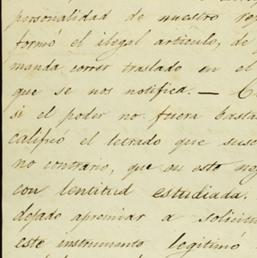 personalidad de nuestro
formó el ilegal articulo, de
manda correr traslado en el
que se nos notifica. —
si el poder no fuera basta
calificó el letrado que
no contrario, que en este
con lentitud estudiada.
dejado apremiar a solicitu
este instrumento legitimó